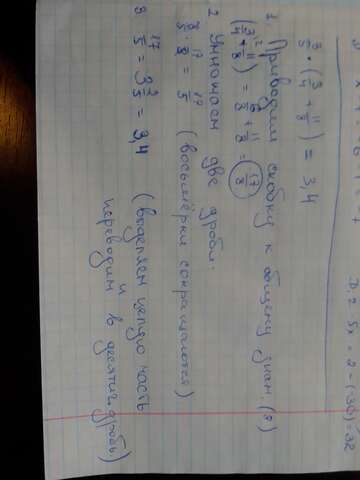 8/5 · (3/4 + 11/8) = 3,4
1. Приводим скобку к общему знам. (8)
(3/4 ² + 11/8) = 6/8 + 11/8 = 17/8
2 Умножаем две дроби:
8/5 · 17/8 = 17/5 (восьмёрки сокращаются)
3 17/5 = 3 2/5 = 3,4 (выделяем целую часть
и
переводим в десятич. дробь)